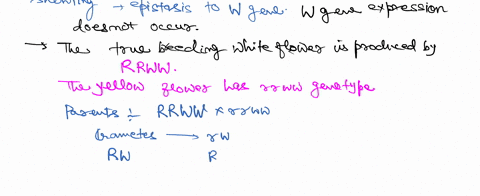 showing → epistasis to W gene. W gene expression
doesnot occur.
→ The true beeding white flower is produced by
RRWW.
The yellow flower has rrww genotype
Parents ÷ RRWW × rrww
Gametes → rw
RW R